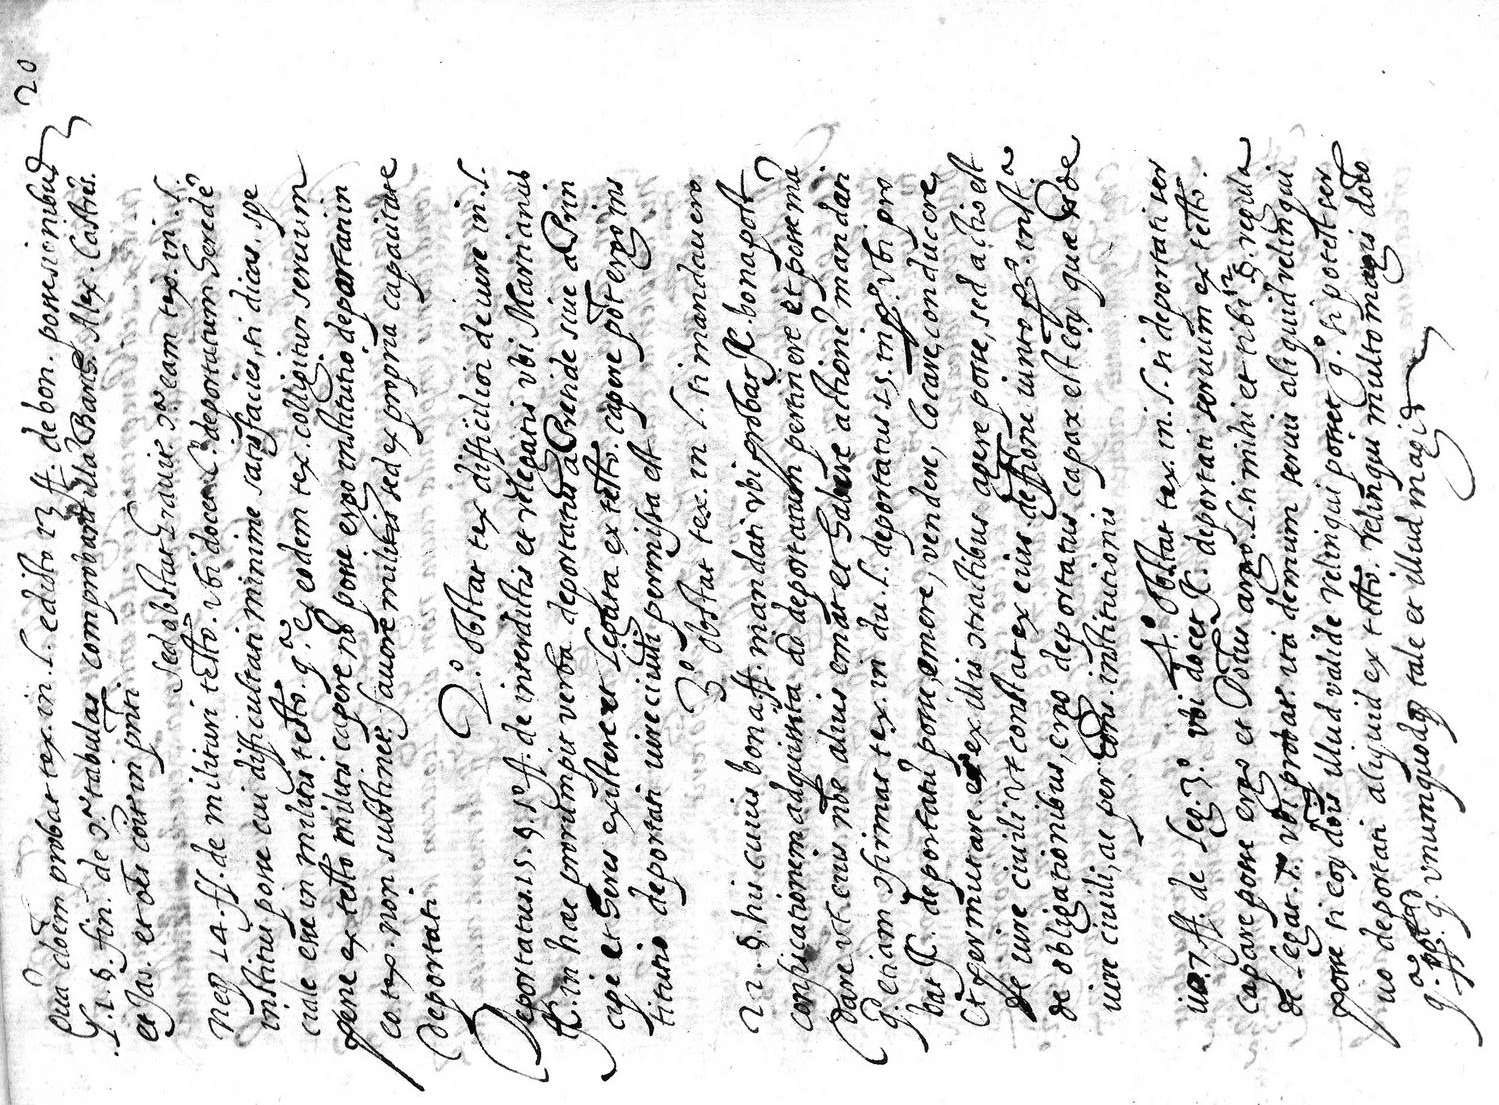 20
quá doém probat tex. in. l. edicto 13 ff. de bon. possesionibus
l. 1. §. fin. de tabulas comprobant illa Bart. Alex. Castrēs.
et Jas. et oēs coīter in pnti.
sed obstat grauit̃ eam tex. in. l.
neq 14. ff. de militari testo. vbi docet C. deportatum herede
institui posse cui difficultati minime satisfacies, si dicas, spe
ciale esse in militis testo. q.ᵃ ex eodem tex. colligitur seruum
pene ex testo militis capere nō posse ergo imitatio deportatum
co tex. non sustinet fauore militis sed ex propria capacitate
deportati
2.º obstat tex difficilior de iure in. l.
Deportatus. 15. §. 1º ff. de interdictis et relegatis vbi Martianus
JC. in haec prorumpit verba deportatus a Preside siue a Prin
cipe et heres existere et legata ex testo. capere potest ergo ins
titutio deportati iure ciuili permissa est
3º obstat tex. in l. si mandauero
22 §. his cuius bona ff. mandati vbi probat JC. bona post
confiscationem adquisita ad deportatum pertinere et posse má
dare vt eius nōe alius emat et habere actionē mandati.
q. etiam cōfirmat tex. in du. l. deportatus 15. in ppº. vbi pro
bat JC. deportatū posse, emere, vendere, locare, conducere,
et permutare et ex illis cōtractibus agere posse, sed actio est
de iure ciuili vt constat ex eius definitione iuncto pº. inst.ᵃ
de obligationibus, ergo deportatus capax est eoȝ quae sunt de
iure ciuili, ac per cons. institutionis
4º obstat tex. in. l. si deportati ser
uo. 7. ff. de leg. 3º vbi docet JC. deportati seruum ex testo.
capare posse ergo et Dominus argo. l. si mihi et tibi 12 §. regula
de legat. 1. vbi probat. ita demum seruū aliquid relinqui
posse si eoȝ dōis illud valide relinqui posset g.º si potest ser
uo deportati aliquid ex testo. relinqui multo magis dōo
q.ᵃ ppt. q. vnumquodq tale et illud magis